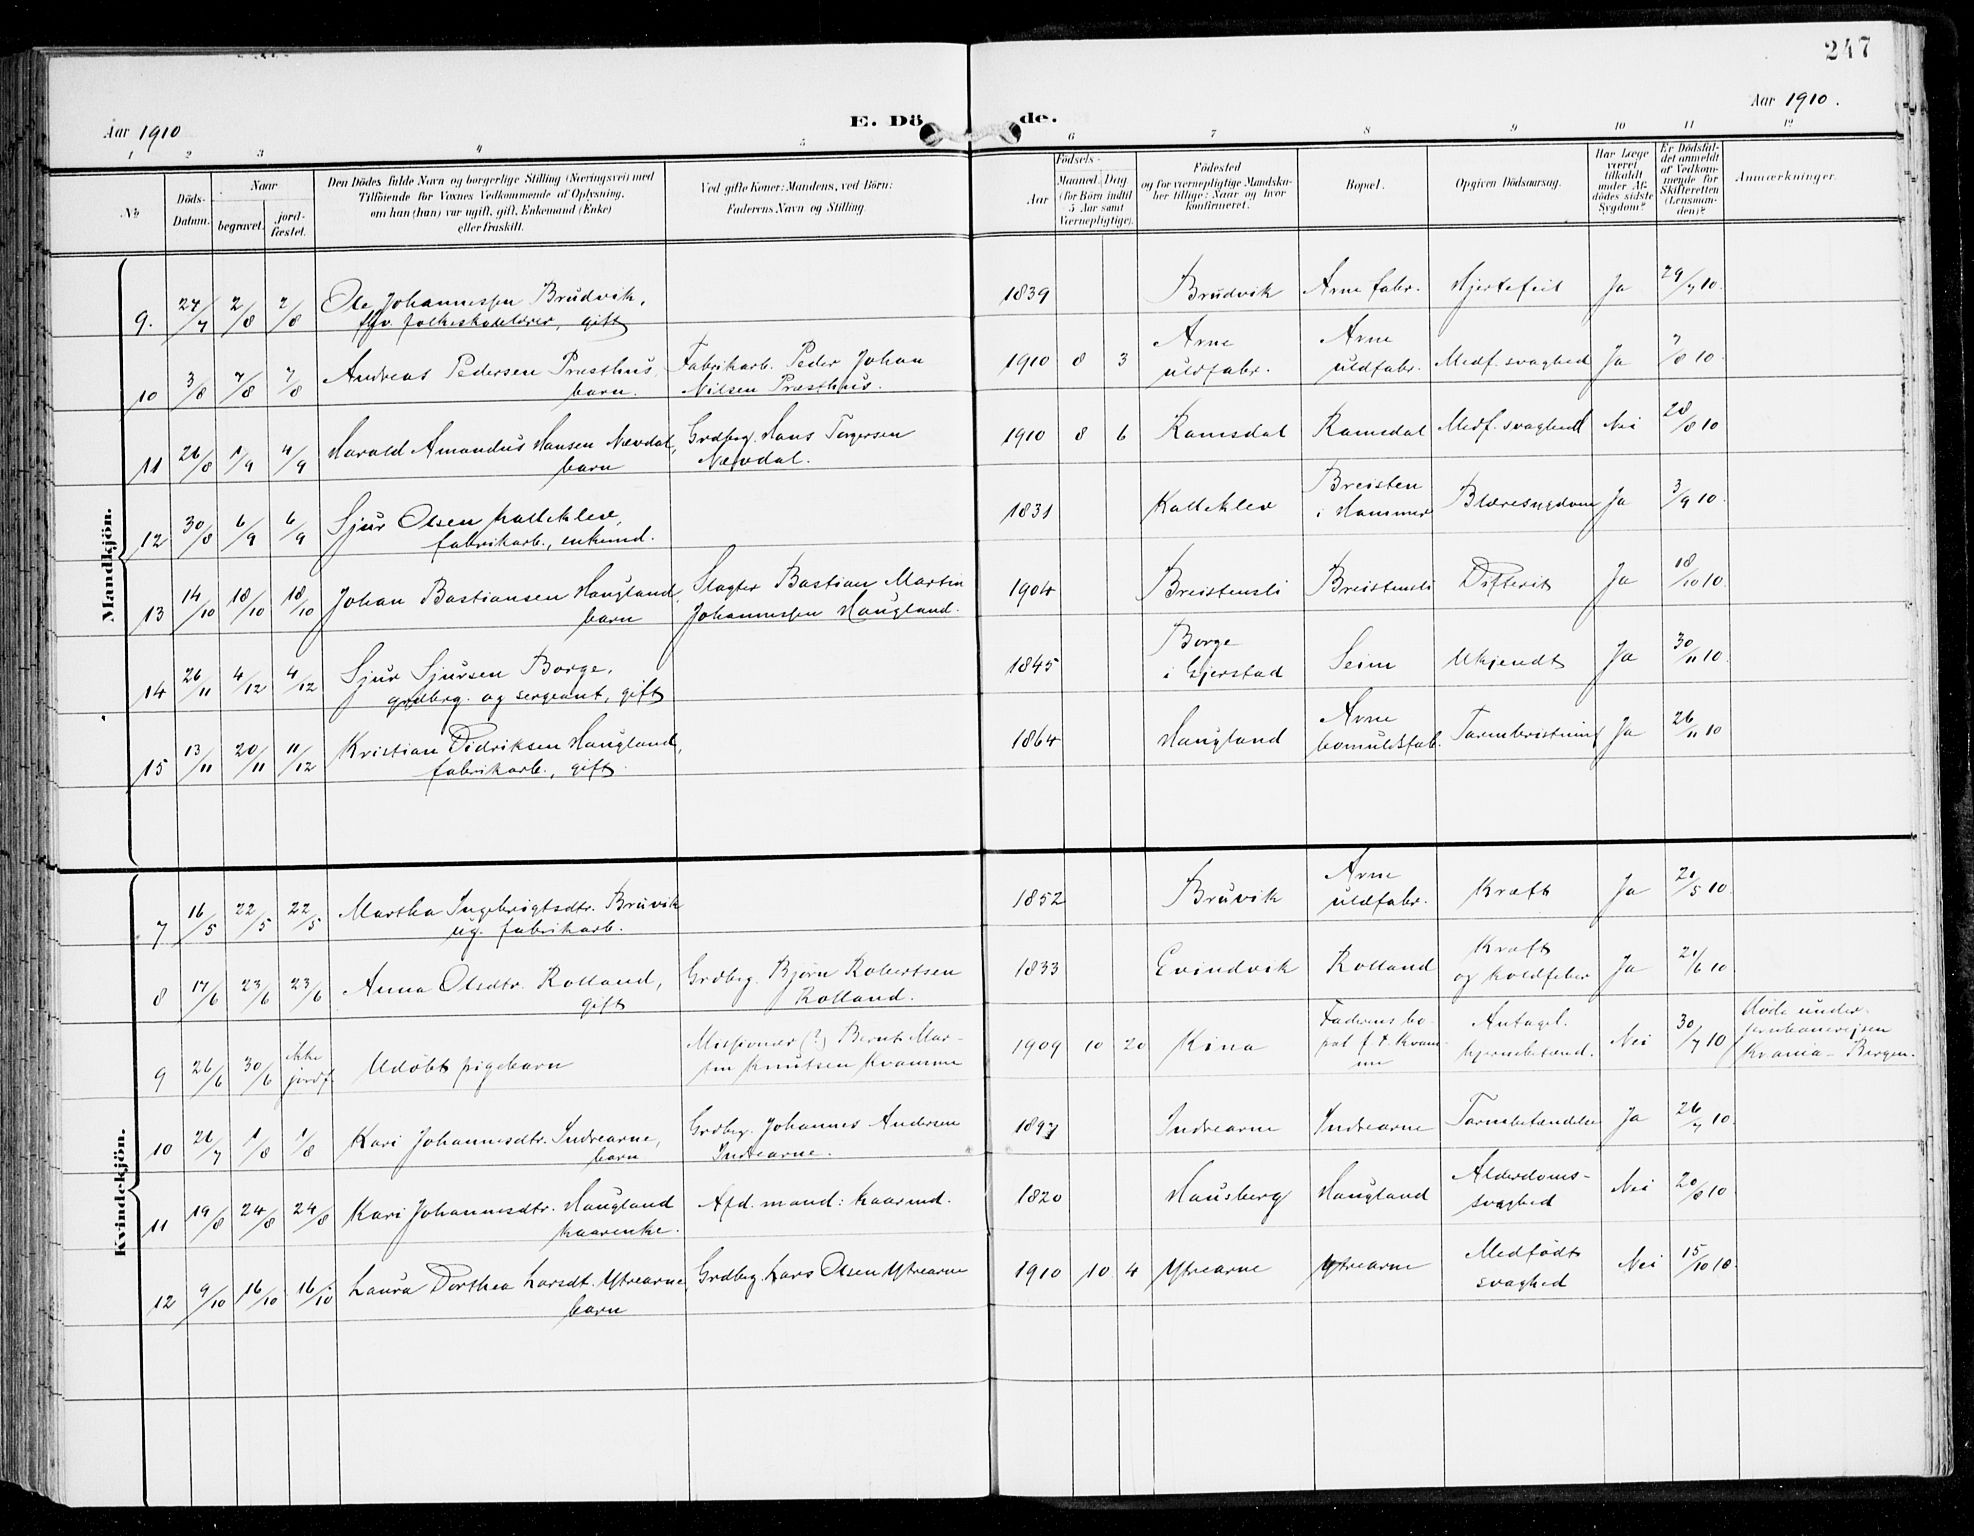 247
Aar 1910
E. Dö
de.
Aar 1910.
1 2 3 4 5 6 7 8 9 10 11 12
№
Döds-Datum.
Naar
begravet.
jord-fæstet.
Den Dödes fulde Navn og borgerlige Stilling (Næringsvei) med
Tilföiende for Voxnes Vedkommende af Oplysning,
om han (hun) var ugift, gift, Enkemand (Enke)
eller fraskilt.
Ved gifte Koner: Mandens, ved Börn:
Faderens Navn og Stilling.
Födsels-
Aar
Maaned. Dag
(for Börn indtil
5 Aar samt
Værnepligtige).
Födested
og for værnepligtige Mandska-
ber tillige: Naar og hvor
konfirmeret.
Bopæl.
Opgiven Dödsaarsag.
Har Læge
været
tilkaldt
under Af-
dödes sidste
Sygdom?
Er Dödsfal-
det anmeldt
af Vedkom-
mende for
Skifteretten
(Lensman-
den)?
Anmærkninger.
Mandkjön.
9. 27/7 2/8 2/8 Ole Johannessen Brudvik, 1839 Brudvik Arne fabr. Hjertefeil Ja 29/7 10.
fhv. folkeskolelærer, gift
10 3/8 7/8 7/8 Andreas Pedersen Præsthus, Fabrikarb. Peder Johan 1910 8 3 Arne Arne Medf. svaghed Ja 7/8 10.
barn. Nilsen Præsthus. uldfabr. uldfabr.
11 26/8 1/9 4/9 Harald Amandus Hansen Nævdal, Grdbrg. Hans Torgersen 1910 8 6 Ramsdal Ramsdal Medf. svaghed Nei 28/8 10
barn Nævdal.
12 30/8 6/9 6/9 Sjur Olsen Kalleklev, 1831 Kalleklev Breisten Blæresygdom Ja 3/9 10.
fabrikarb., enkemd. i Hammer
13 14/10 18/10 18/10 Johan Bastiansen Haugland, Slagter Bastian Martin 1904 Breistensli Breistensli Difterit Ja 18/10 10.
barn Johannessen Haugland.
14 26/11 4/12 4/12 Sjur Sjursen Borge, 1845 Borge Seim Ukjendt Ja 30/11 10.
grdbrg. og sergeant, gift i Gjerstad
15 13/11 20/11 11/12 Kristian Didriksen Haugland, 1864 Haugland Arne Tarmbristning Ja 26/11 10
fabrikarb., gift. bomuldsfab.
Kvindekjön.
7 16/5 22/5 22/5 Martha Ingebrigtsdtr. Bruvik 1852 Bruvik Arne Kræft Ja 21/5 10.
ug. fabrikarb. uldfabr.
8 17/6 23/6 23/6 Anna Olsdtr. Rolland, Grdbrg. Bjørn Robertsen 1833 Evindvik Rolland Kræft Ja 21/6 10
gift Rolland. og koldfeber
9 26/6 30/6 ikke Udøbt pigebarn Missionær (?) Bernt Mar- 1909 10 20 Kina Faderens bo- Antagel. Nei 30/7 10 Døde under
jordf. tin Knutsen Kvamme pæl f. t. Kvam- hjernebetænd. jernbanereisen
me Krania - Bergen.
10 21/7 1/8 1/8 Kari Johannesdtr. Indrearne, Grdbrg. Johannes Andersen 1897 Indrearne Indrearne Tarmbetændelse Ja 26/7 10.
barn Indrearne.
11 19/8 24/8 24/8 Kari Johannesdtr. Haugland Afd. mand: kaarmd. 1820 Hausberg Haugland Alderdoms- Nei 20/8 10
kaarenke. svaghed
12 9/10 16/10 16/10 Laura Dorthea Larsdt. Ytrearne, Grdbrg. Lars Olsen Ytrearne 1910 10 4 Ytrearne Ytrearne Medfødt Nei 15/10 10.
barn svaghed